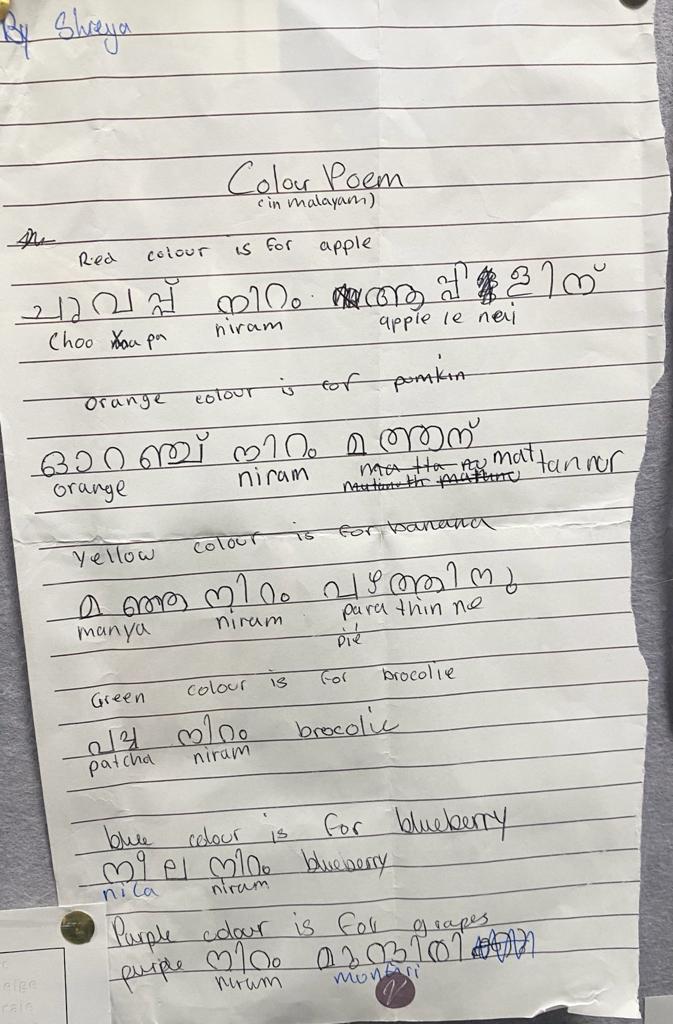 By Shreya
Colour Poem
(in malayam)
Red colour is for apple
ചുവപ്പ് നിറം ആപ്പിളിന്
Choo pa niram apple le nej
orange colour is for pumkin
ഓറഞ്ച് നിറം മത്തന്
orange niram ma tta nu mat tannor
yellow colour is for banana
മഞ്ഞ നിറം പഴത്തിനു
manya niram para thin ne
pié
Green colour is for brocolie
പച്ച നിറം brocolie
patcha niram
blue colour is for blueberry
നീല നിറം blueberry
nila niram
Purple colour is for grapes
purple നിറം മുന്തിരി
nirum montiri